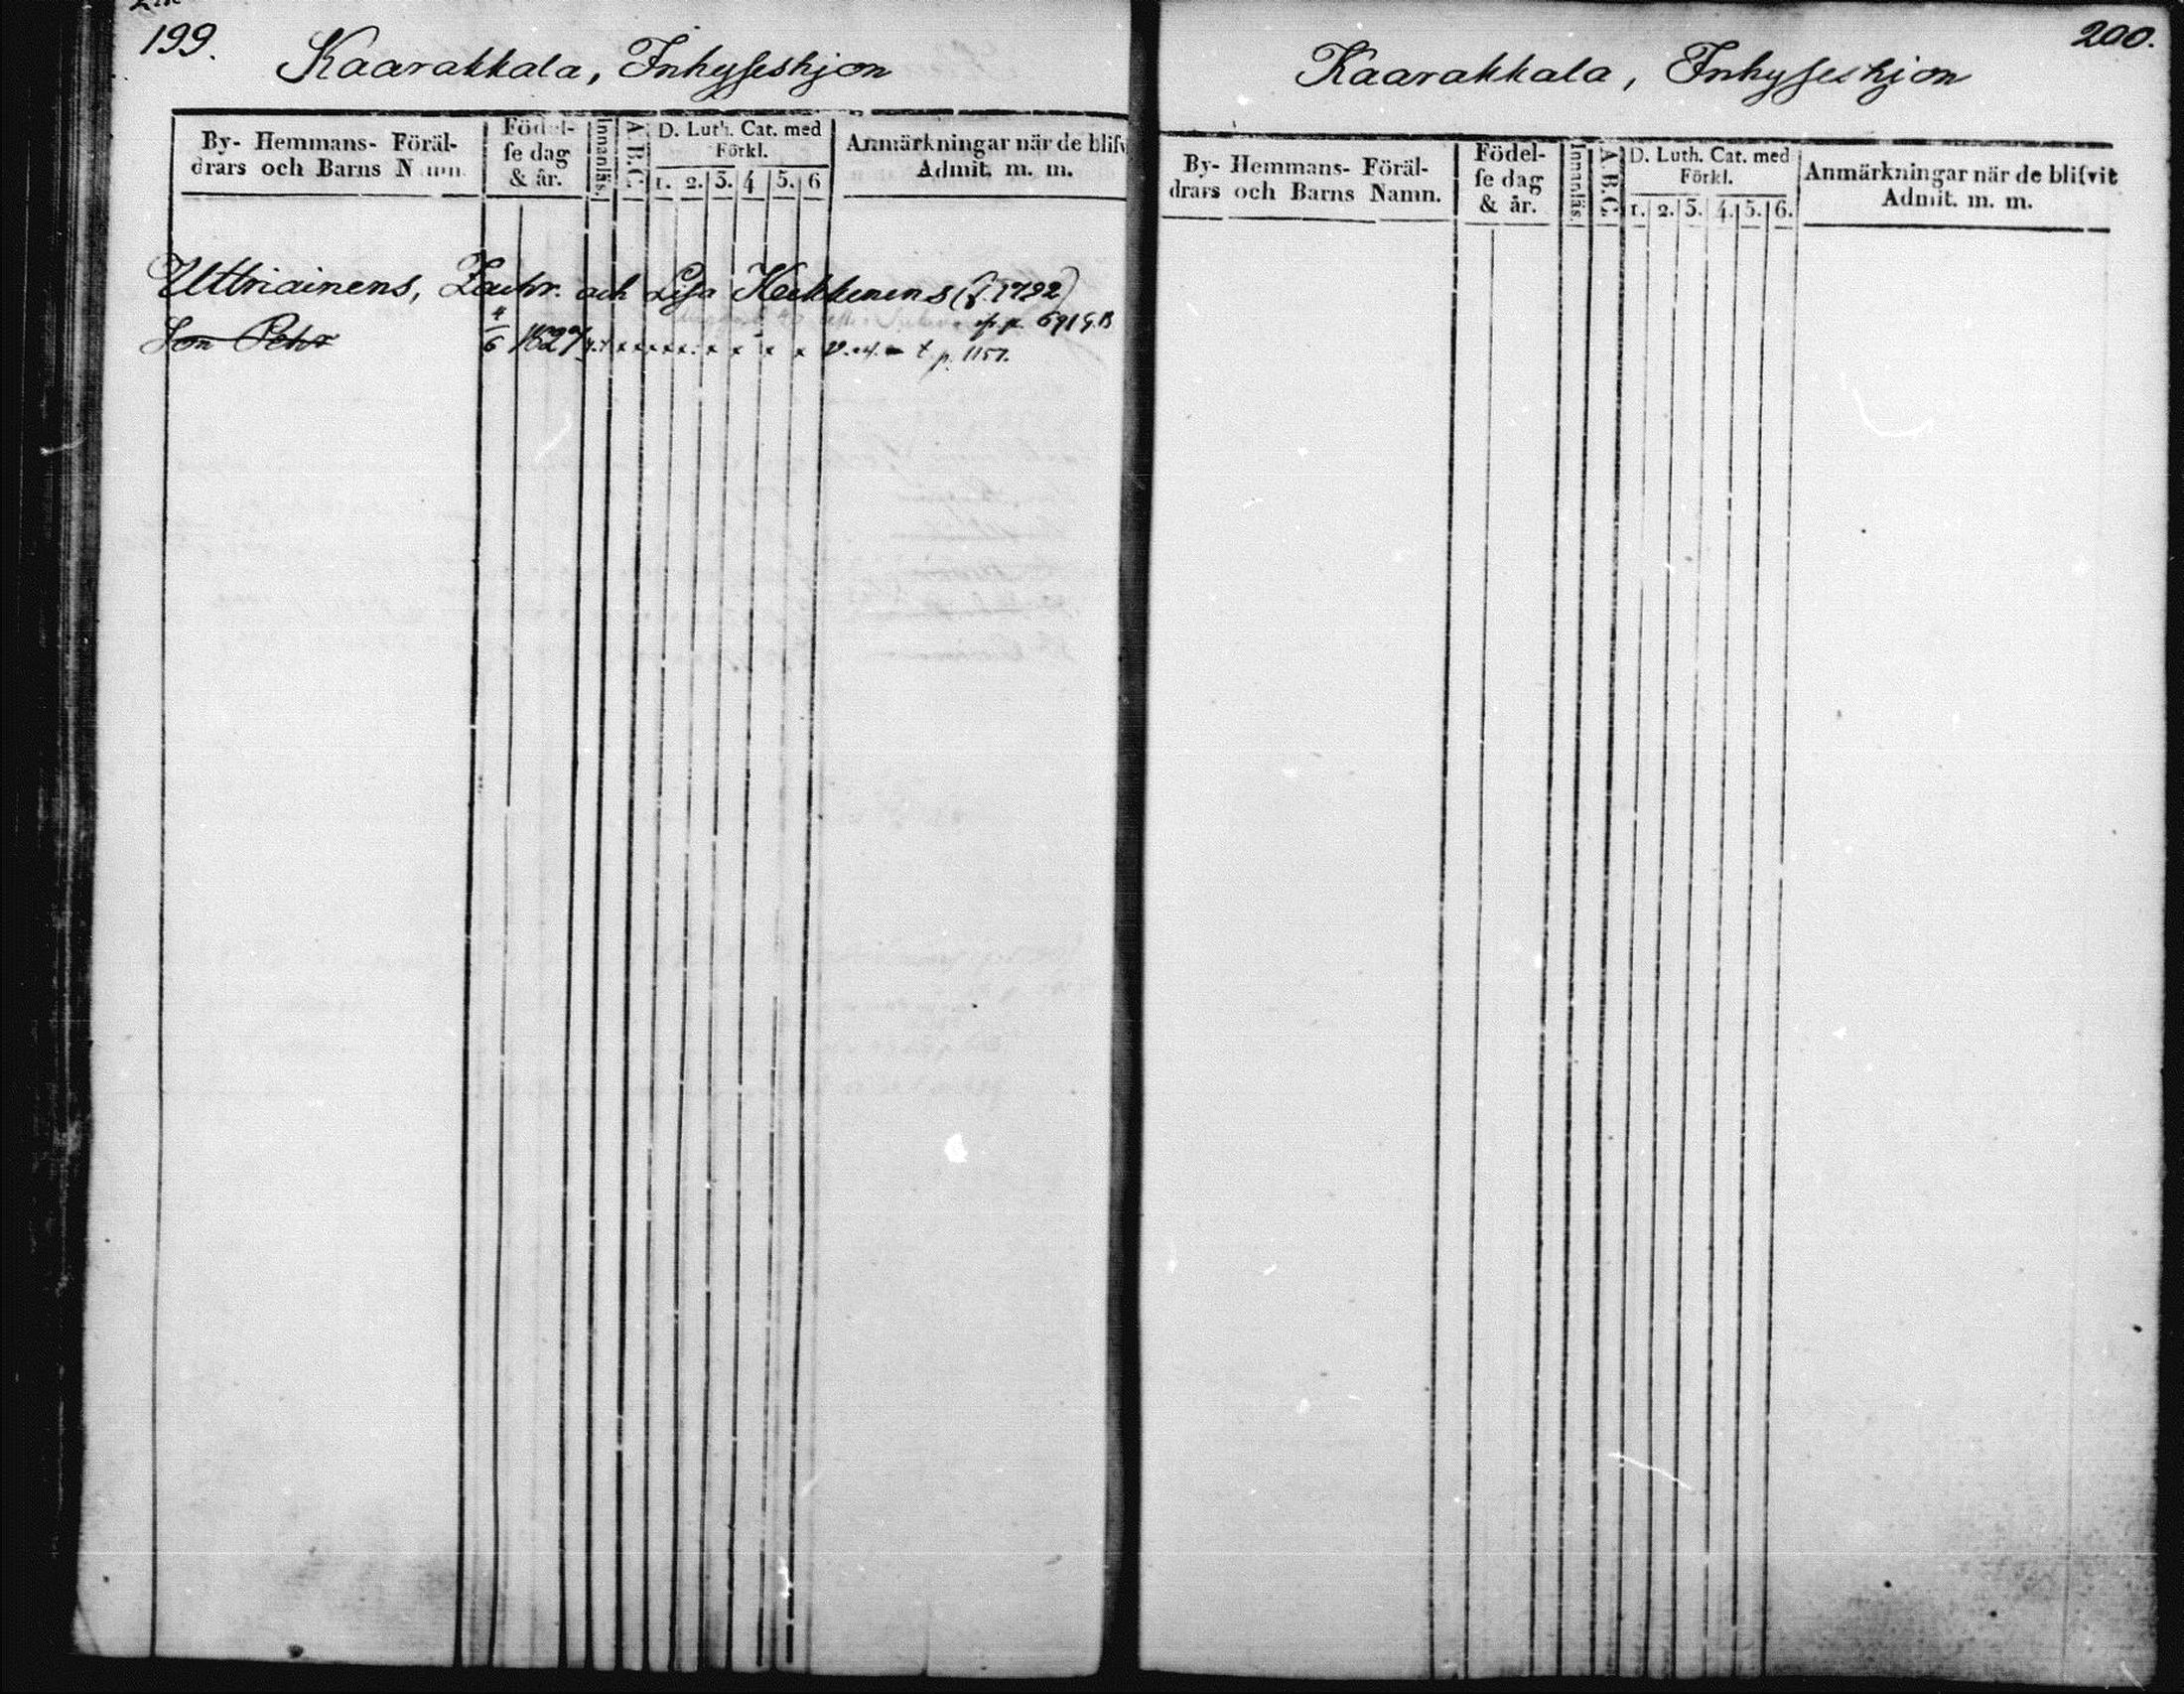 199.
Kaarakkala, Inhysеshjon
By- Hemmans- Föräl-
drars och Barns Namn.
Födel-
se dag
& år.
Innanläs.
A.B.C.
D. Luth. Cat. med
Förkl.
1. 2. 3. 4 5. 6
Anmärkningar när de blifv
Admit. m. m.
Uttriainens, Zachr. och Lisa Kekkonens (f. 1792)
p. 691 G.B
Son Pehr 4/6 1827 x x x x x x x x x p. 1157.
200.
Kaarakkala, Inhyseshjon
By- Hemmans- Föräl-
drars och Barns Namn.
Födel-
se dag
& år.
Innanläs.
A.B.C.
D. Luth. Cat. med
Förkl.
1. 2. 3. 4. 5. 6.
Anmärkningar när de blifvit
Admit. m. m.